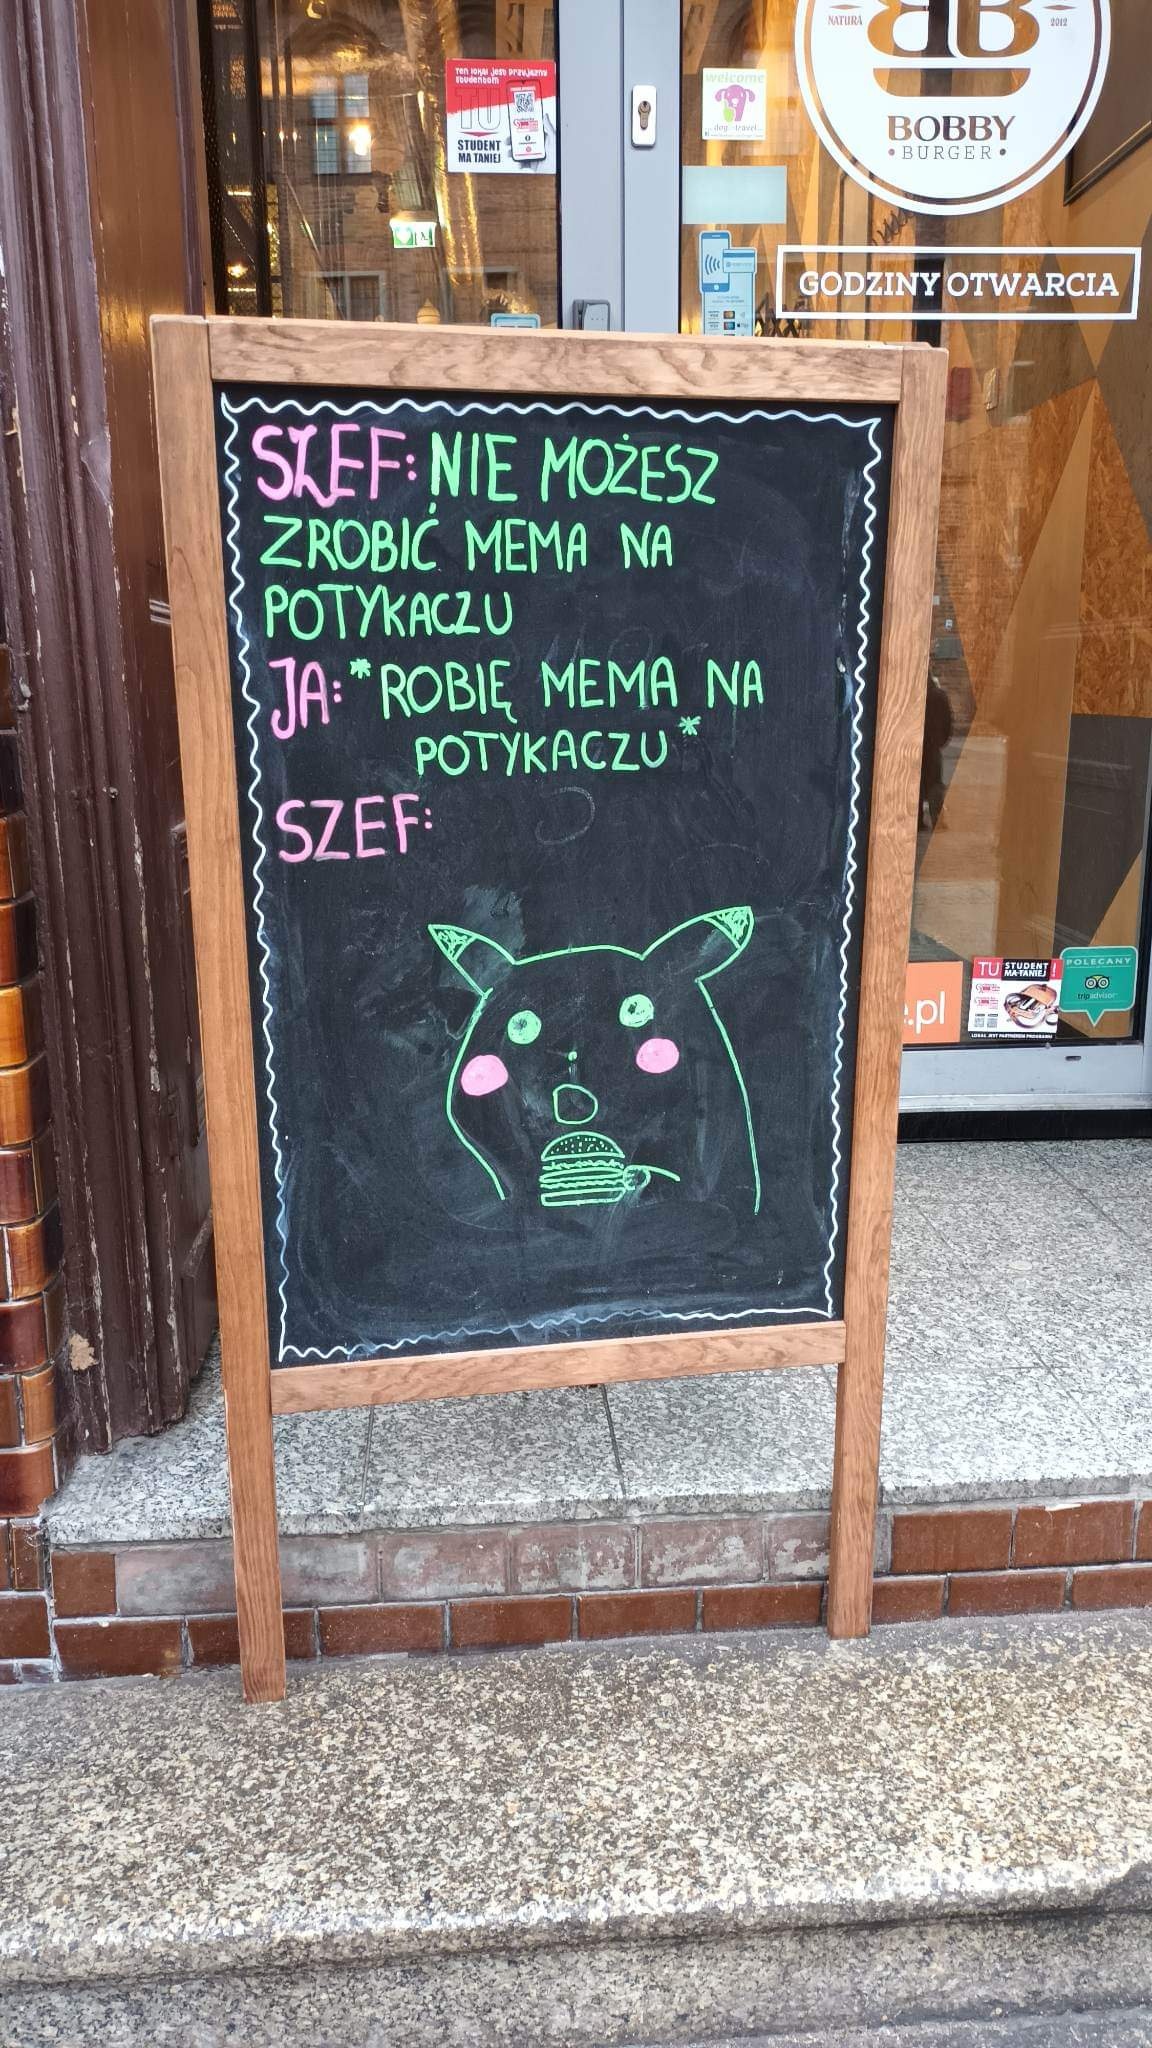 NATURA
2012
BB
BOBBY
• BURGER •
GODZINY OTWARCIA
Ten lokal jest przyjazny
studentom
TU
STUDENT
MA TANIEJ
welcome
SZEF: NIE MOŻESZ
ZROBIĆ MEMA NA
POTYKACZU
JA: *ROBIĘ MEMA NA
POTYKACZU*
SZEF:
e.pl
TU STUDENT !
MA TANIEJ
LOKAL JEST PARTNEREM PROGRAMU
POLECANY
tripadvisor